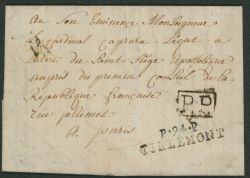 a Son Eminence Monseigneur
Cardinal Caprara Légat a
latere du Saint Siège apostolique
auprès du premier Consul de la
République française
rue plumet
a paris
P.P
P.94.P
TIRLEMONT